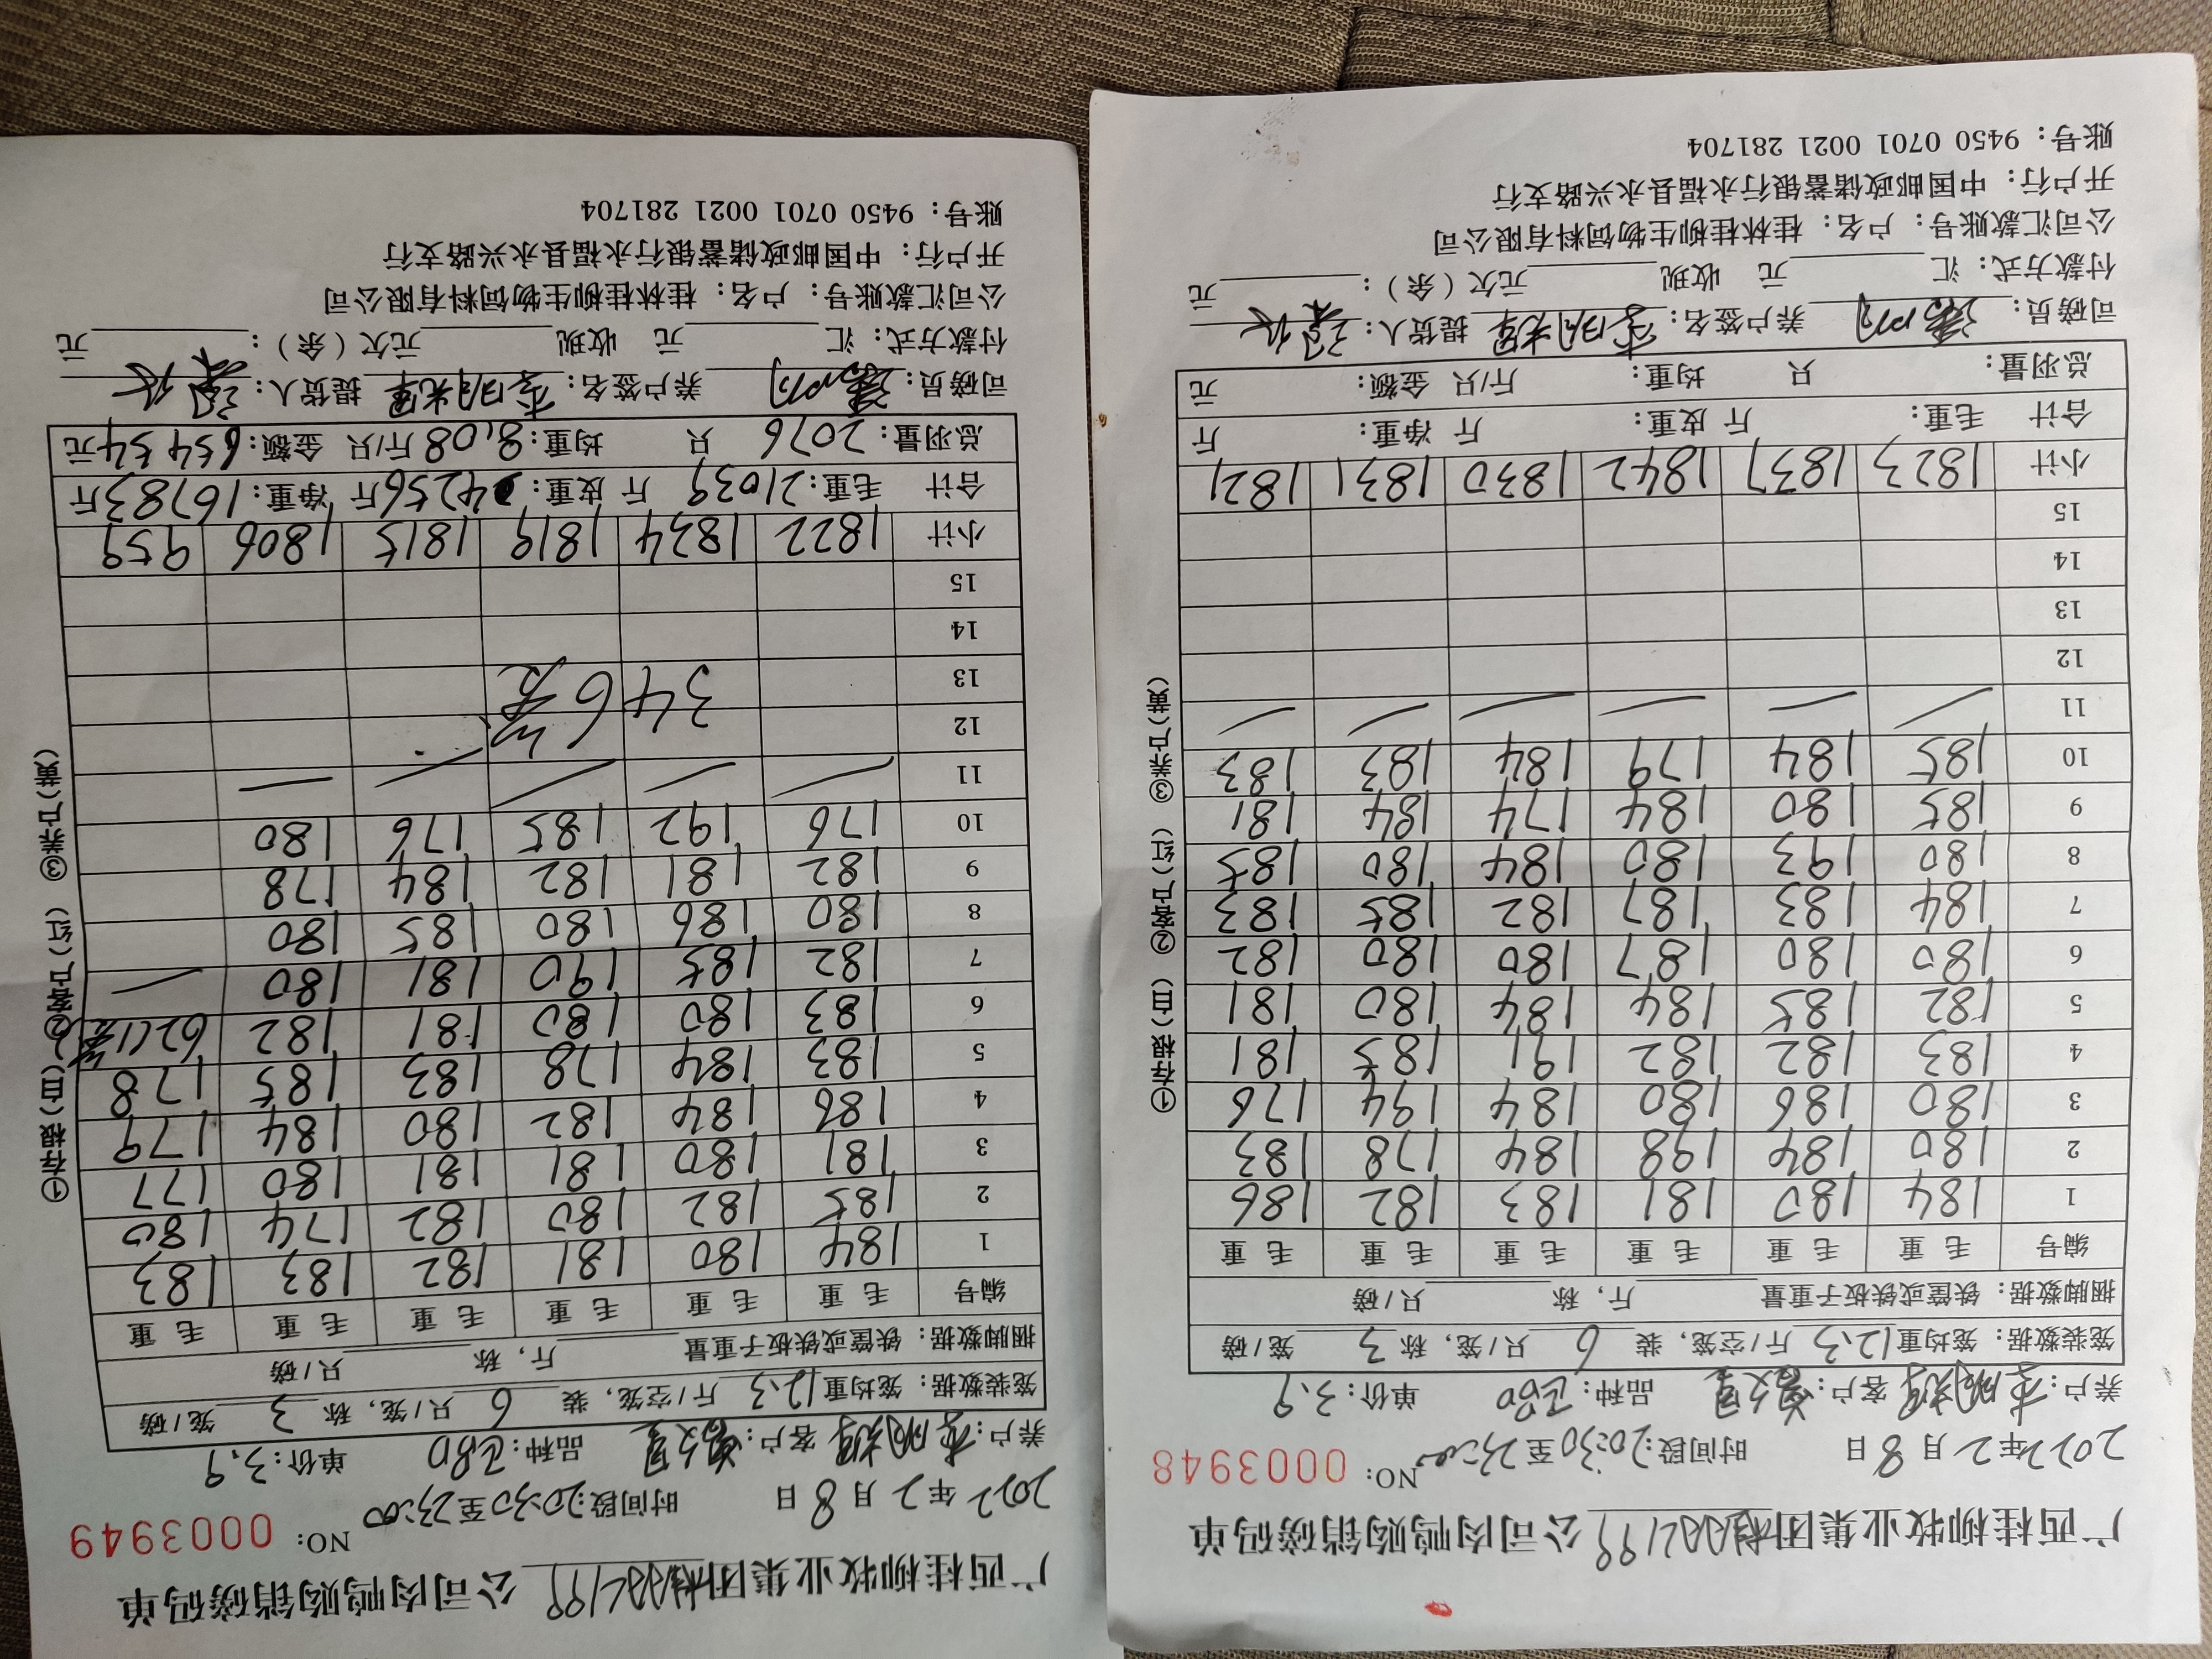 广西桂柳牧业集团 公司肉鸭购销磅码单
NO: 0003948
2022年2月8日 时间段:20:30至23:00
养户: 客户: 品种: 单价:3.9
笼装数据: 笼均重12.3斤/空笼, 装 6 只/笼, 称 3 笼/磅
捆脚数据: 铁筐或铁板子重量 斤, 称 只/磅
编号 毛重 毛重 毛重 毛重 毛重 毛重
1 184 180 181 183 182 186
2 180 184 198 184 178 183
3 180 186 180 184 194 176
4 183 182 182 191 185 181
5 182 185 184 184 180 181
6 180 180 187 180 180 182
7 184 183 187 182 185 183
8 180 193 180 184 180 185
9 185 180 184 174 184 181
10 185 184 179 184 183 183
11
12
13
14
15
小计 1823 1837 1842 1830 1831 1821
合计 毛重: 斤 皮重: 斤 净重: 斤
总羽量: 只 均重: 斤/只 金额: 元
司磅员: 养户签名: 提货人:
付款方式: 汇 元 收现 元欠(余): 元
公司汇款账号: 户名: 桂林桂柳生物饲料有限公司
开户行: 中国邮政储蓄银行永福县永兴路支行
账号: 9450 0701 0021 281704
①存根(白) ②客户(红) ③养户(黄)
广西桂柳牧业集团 公司肉鸭购销磅码单
NO: 0003949
2022年2月8日 时间段:20:30至23:00
养户: 客户: 品种: 单价:3.9
笼装数据: 笼均重12.3斤/空笼, 装 6 只/笼, 称 3 笼/磅
捆脚数据: 铁筐或铁板子重量 斤, 称 只/磅
编号 毛重 毛重 毛重 毛重 毛重 毛重
1 184 180 181 182 183 183
2 185 182 180 182 174 180
3 181 180 181 181 180 177
4 186 184 182 180 184 179
5 183 184 178 183 185 178
6 183 180 180 181 182 62(1笼)
7 182 185 190 181 180
8 180 186 180 185 180
9 182 181 182 184 178
10 176 192 185 176 180
11
12
13 346笼
14
15
小计 1822 1834 1819 1815 1806 959
合计 毛重:21039 斤 皮重:4256斤 净重:16783斤
总羽量:2076 只 均重:8.08斤/只 金额:65454元
司磅员: 养户签名: 提货人:
付款方式: 汇 元 收现 元欠(余): 元
公司汇款账号: 户名: 桂林桂柳生物饲料有限公司
开户行: 中国邮政储蓄银行永福县永兴路支行
账号: 9450 0701 0021 281704
①存根(白) ②客户(红) ③养户(黄)